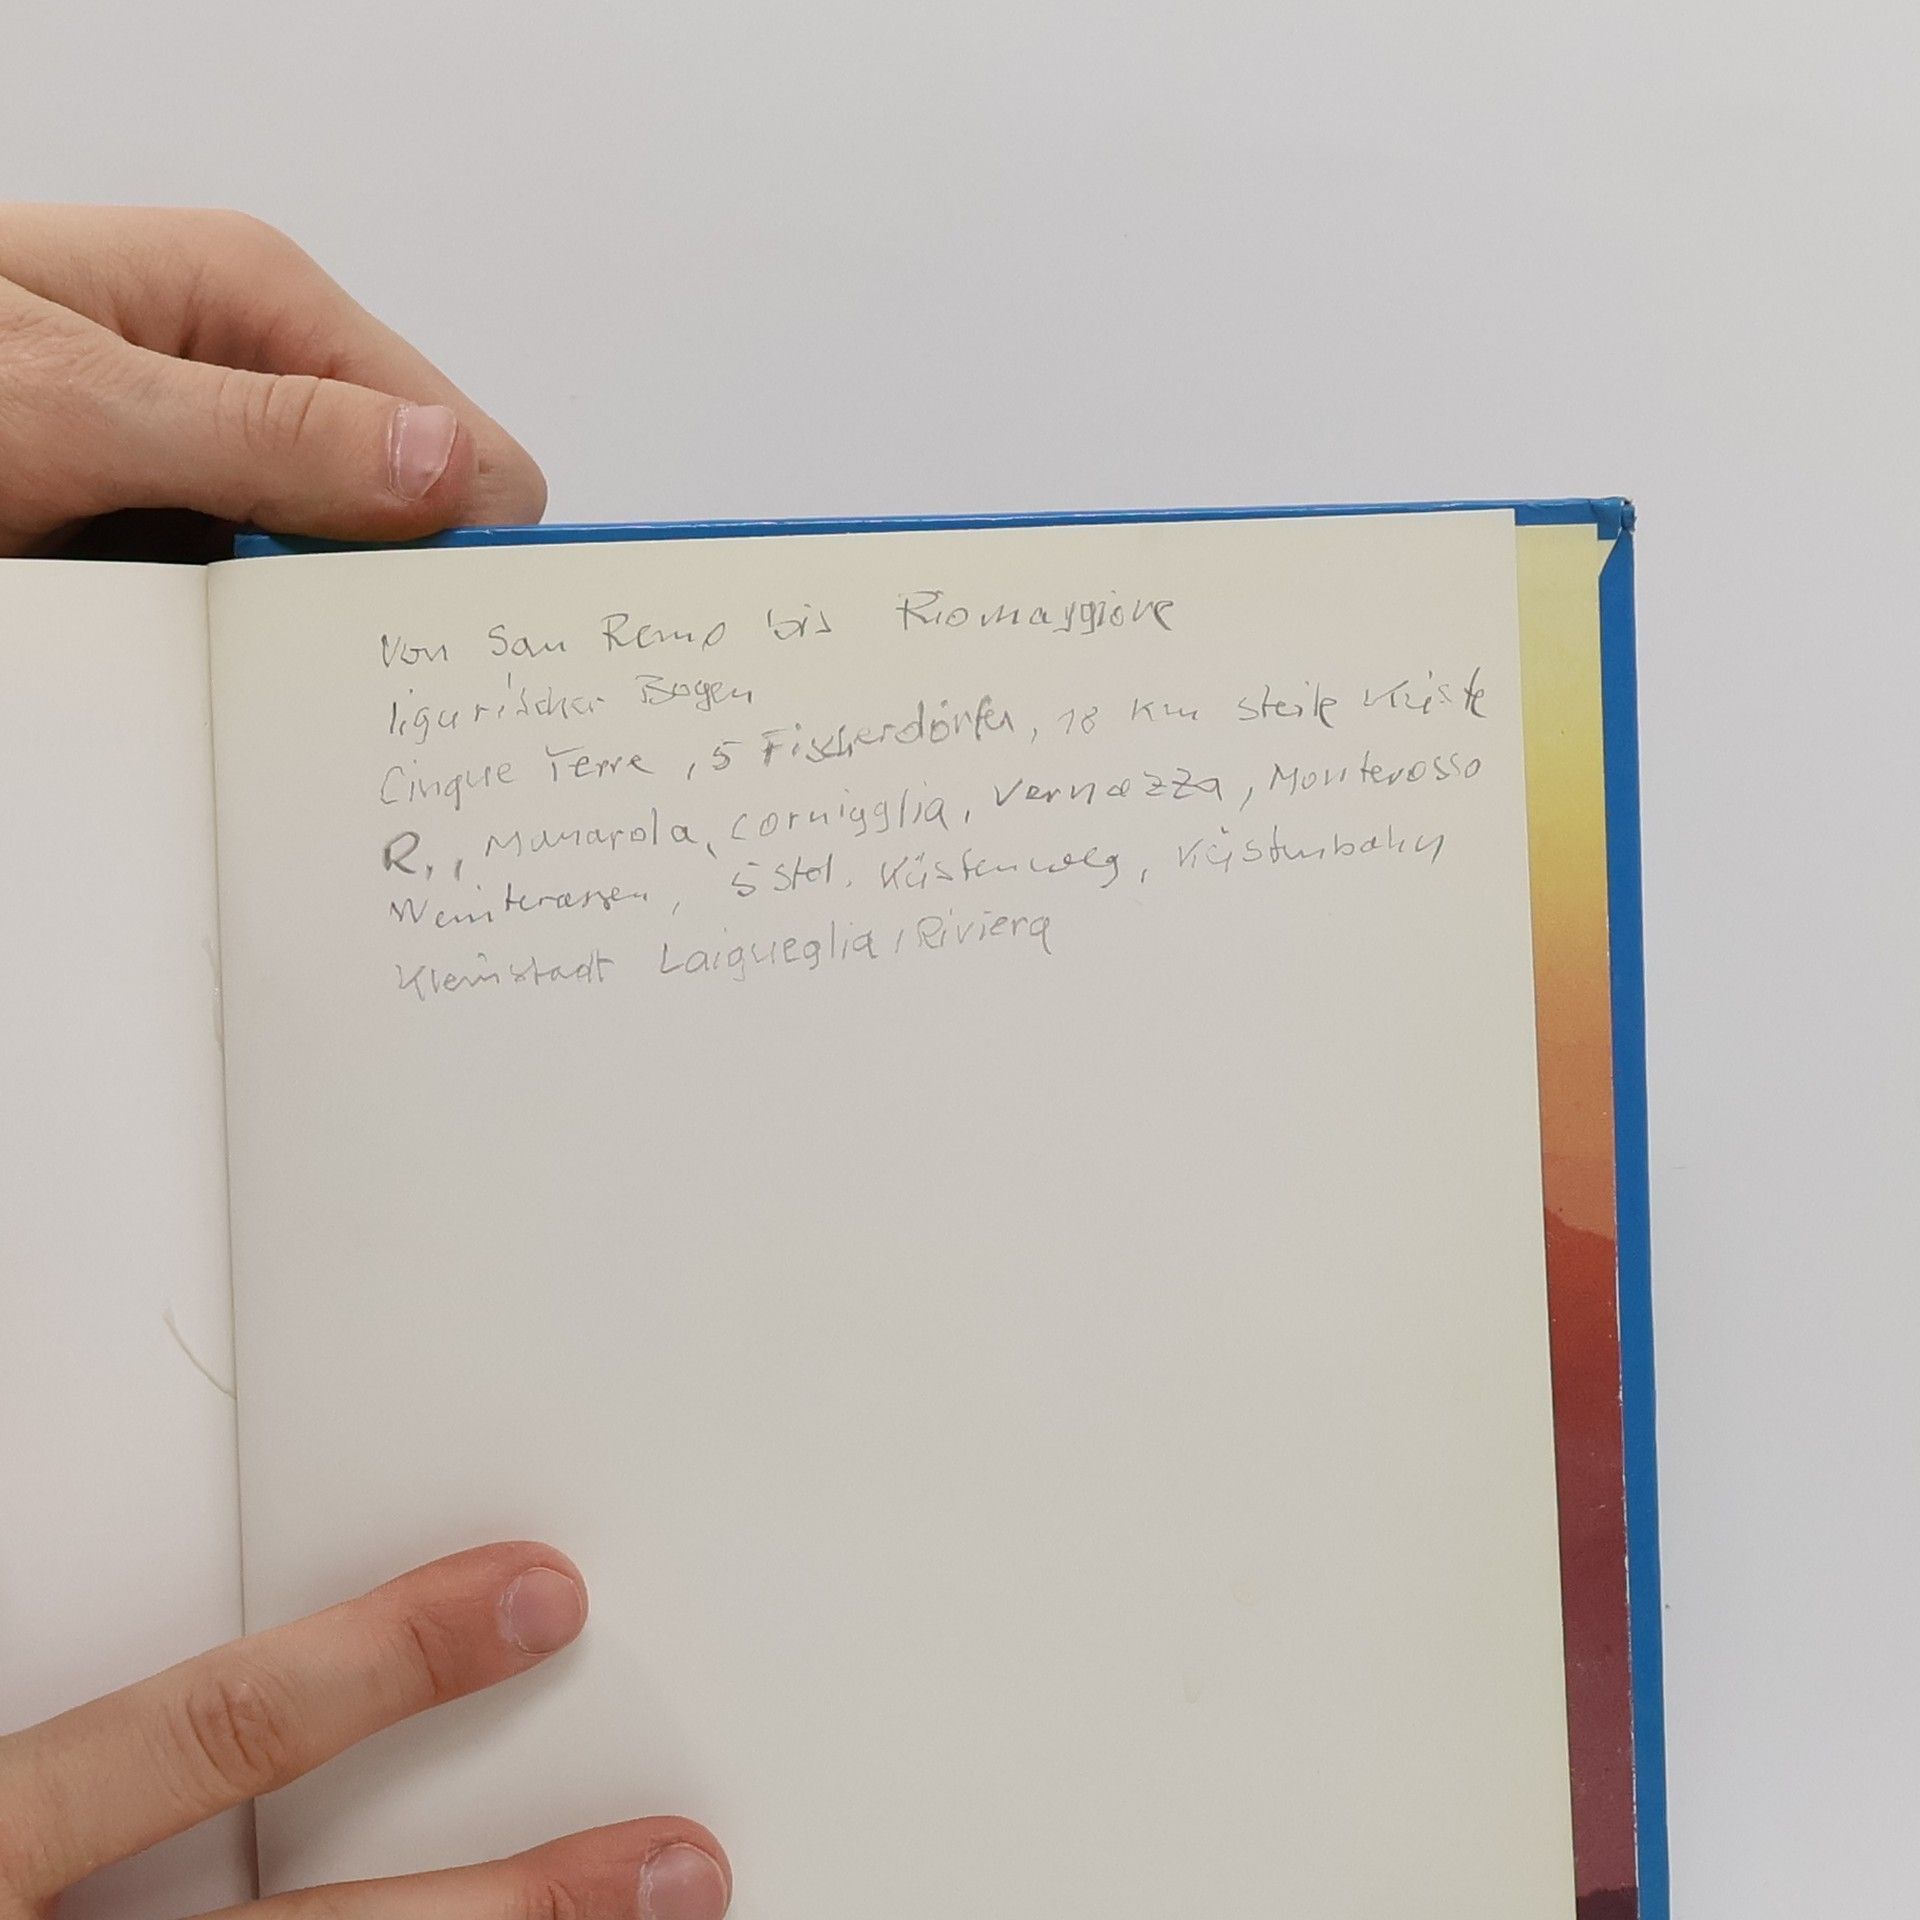 Von San Remo bis Riomaggiore
ligurischer Bogen
Cinque Terre, 5 Fischerdörfer, 18 Km steile Küste
R., Manarola, Cornigglia, Vernazza, Monterosso
Weinterassen, 5 Std. Küstenweg, Küstenbahn
Kleinstadt Laigueglia, Riviera